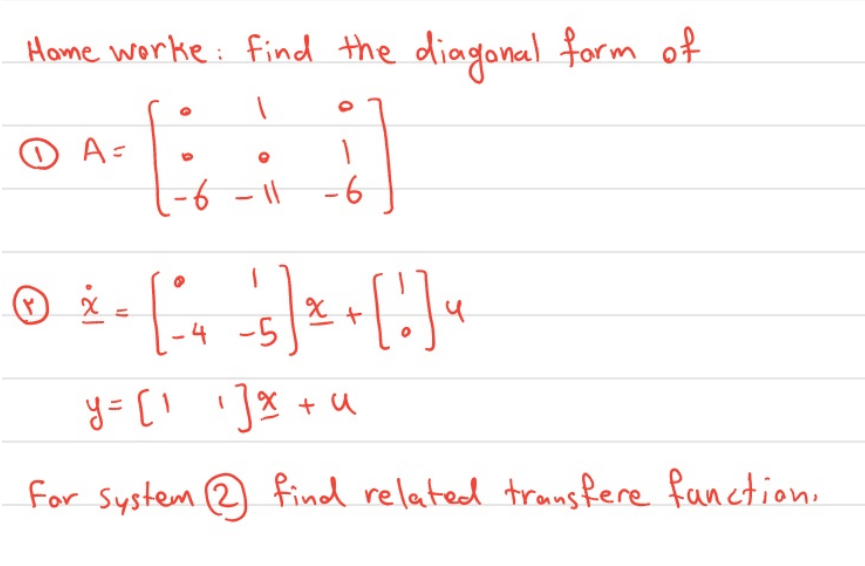 Home worke: find the diagonal form of
① A = [ 0 1 0
0 0 1
-6 -11 -6 ]
② ẋ = [ 0 1
-4 -5 ] x + [ 1
0 ] u
y = [ 1 1 ] x + u
For system ② find related transfere function.